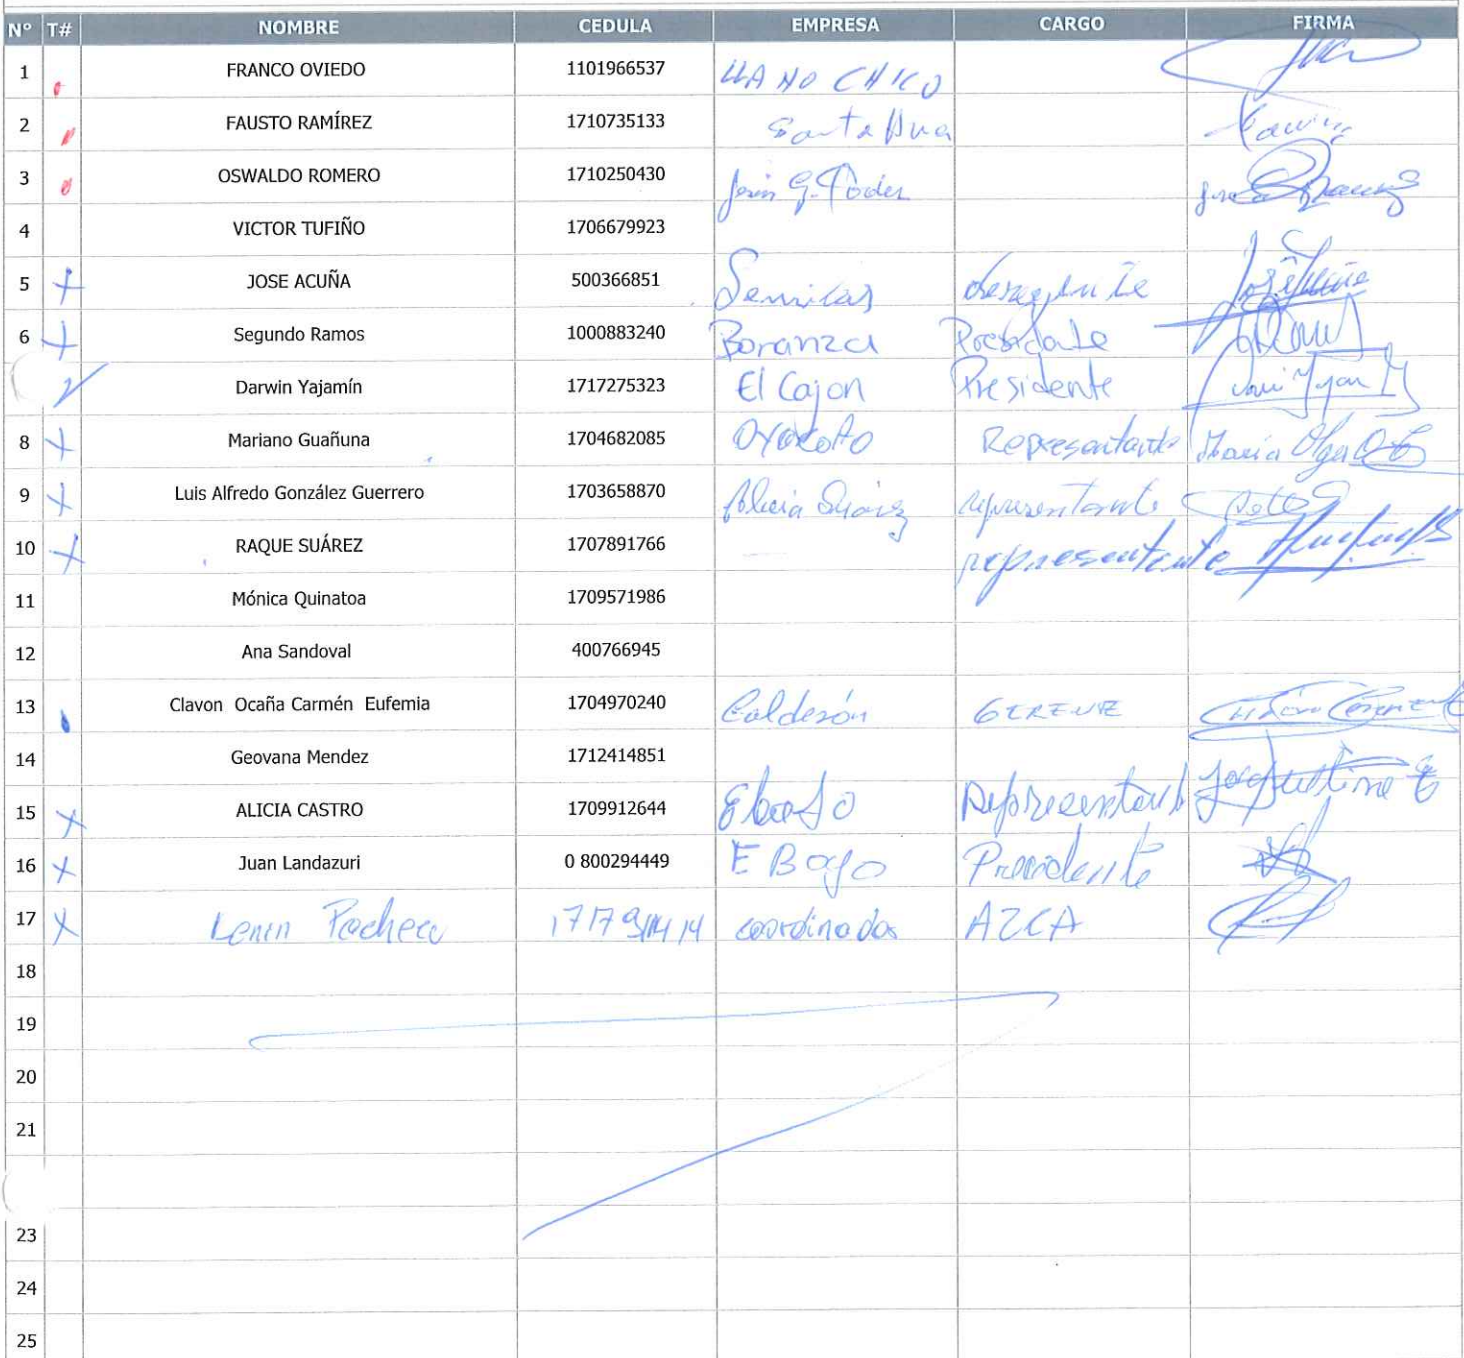 N° T# NOMBRE CEDULA EMPRESA CARGO FIRMA
1 FRANCO OVIEDO 1101966537 LLANO CHICO
2 FAUSTO RAMÍREZ 1710735133 Santa Ana
3 OSWALDO ROMERO 1710250430
4 VICTOR TUFIÑO 1706679923
5 JOSE ACUÑA 500366851 Semillas
6 Segundo Ramos 1000883240 Boranza Presidente
Darwin Yajamín 1717275323 El Cajon Presidente
8 Mariano Guañuna 1704682085 Oyacoto Representante María Olga
9 Luis Alfredo González Guerrero 1703658870 Alicia Suárez representante
10 RAQUE SUÁREZ 1707891766 representante
11 Mónica Quinatoa 1709571986
12 Ana Sandoval 400766945
13 Clavon Ocaña Carmén Eufemia 1704970240 Calderón GERENTE
14 Geovana Mendez 1712414851
15 ALICIA CASTRO 1709912644 Representante
16 Juan Landazuri 0 800294449 E Bajo Presidente
17 Lenin Pacheco coordinador AZCA
18
19
20
21
23
24
25